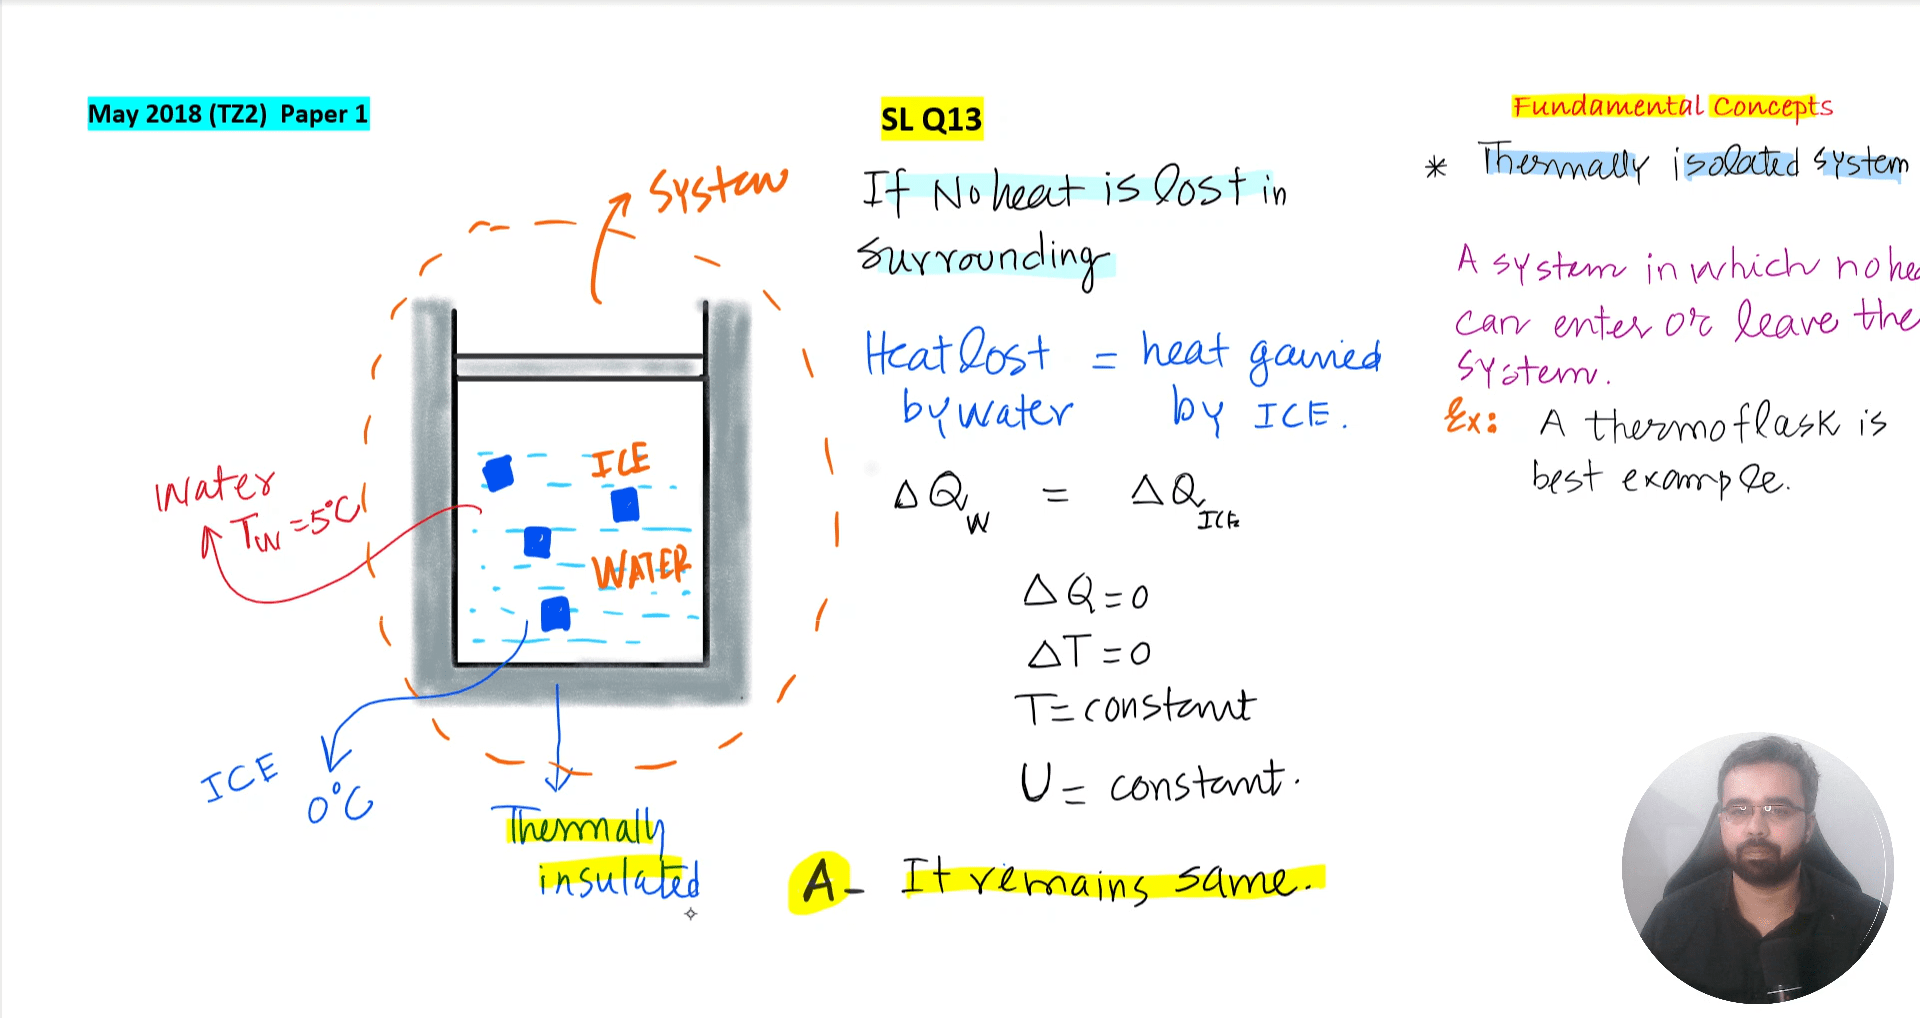 May 2018 (TZ2) Paper 1
System
Water
Tw = 5°C
ICE
WATER
ICE
0°C
Thermally
insulated
SL Q13
If No heat is lost in
surrounding
Heat lost = heat gained
by water by ICE.
ΔQw = ΔQICE
ΔQ = 0
ΔT = 0
T = constant
U = constant.
A- It remains same.
Fundamental Concepts
* Thermally isolated system
A system in which no hea
can enter or leave the
system.
Ex: A thermoflask is
best example.